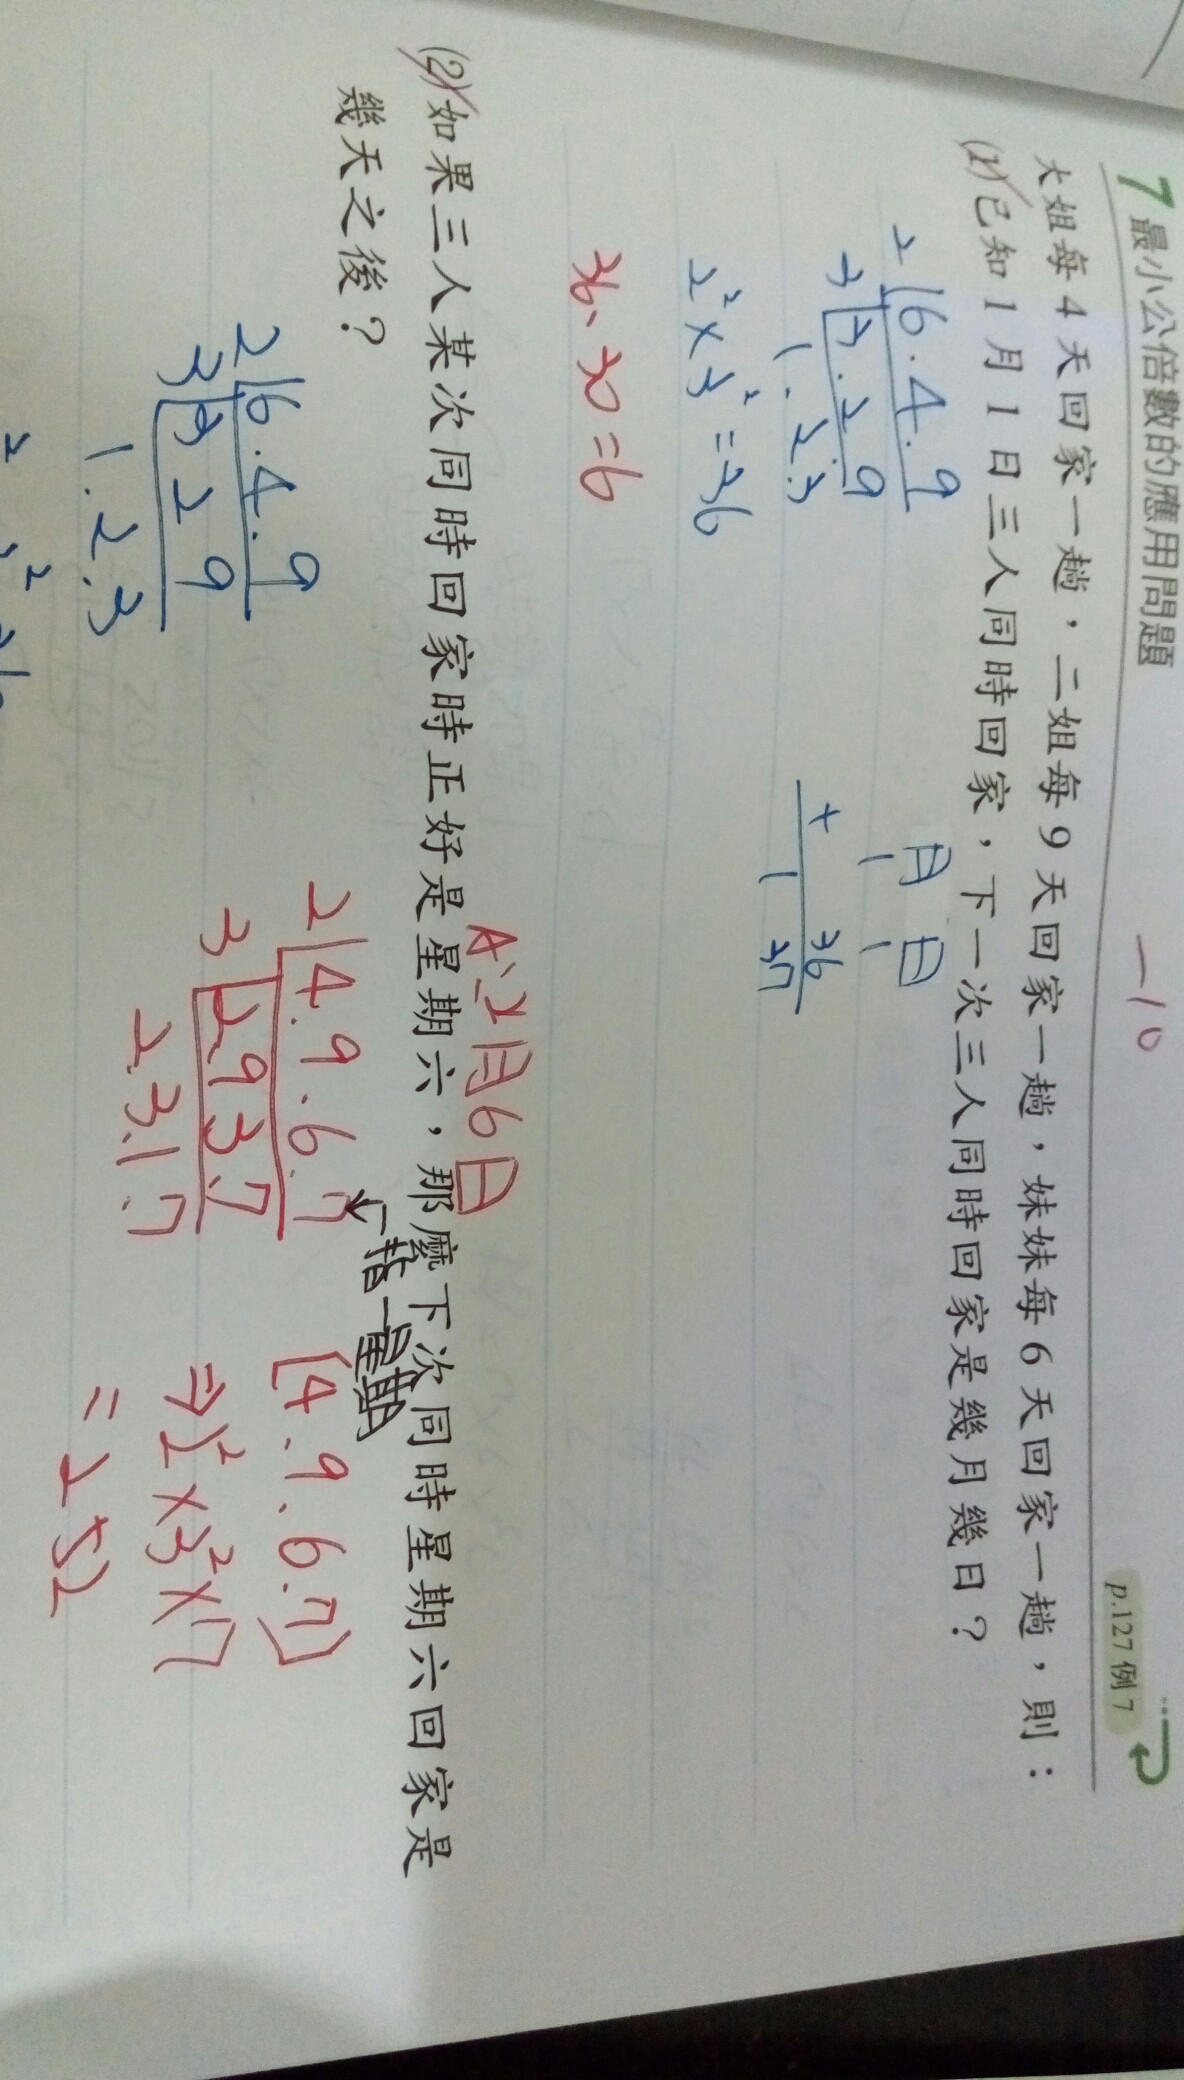 7 最小公倍數的應用問題
-10
p.127 例7
大姐每4天回家一趟，二姐每9天回家一趟，妹妹每6天回家一趟，則：
(1) 已知1月1日三人同時回家，下一次三人同時回家是幾月幾日？
2 6.4.9
3 3.2.9
1.2.3
2²×3²=36
月 日
1 1
+ 36
1 37
36、30=6
A:2月6日
(2) 如果三人某次同時回家時正好是星期六，那麼下次同時星期六回家是
幾天之後？
2 6.4.9
3 3 2 9
1.2.3
2 4.9.6.7
指一星期
3 2.9 3.7
2.3.1.7
[4.9.6.7]
⇒2²×3²×7
=252